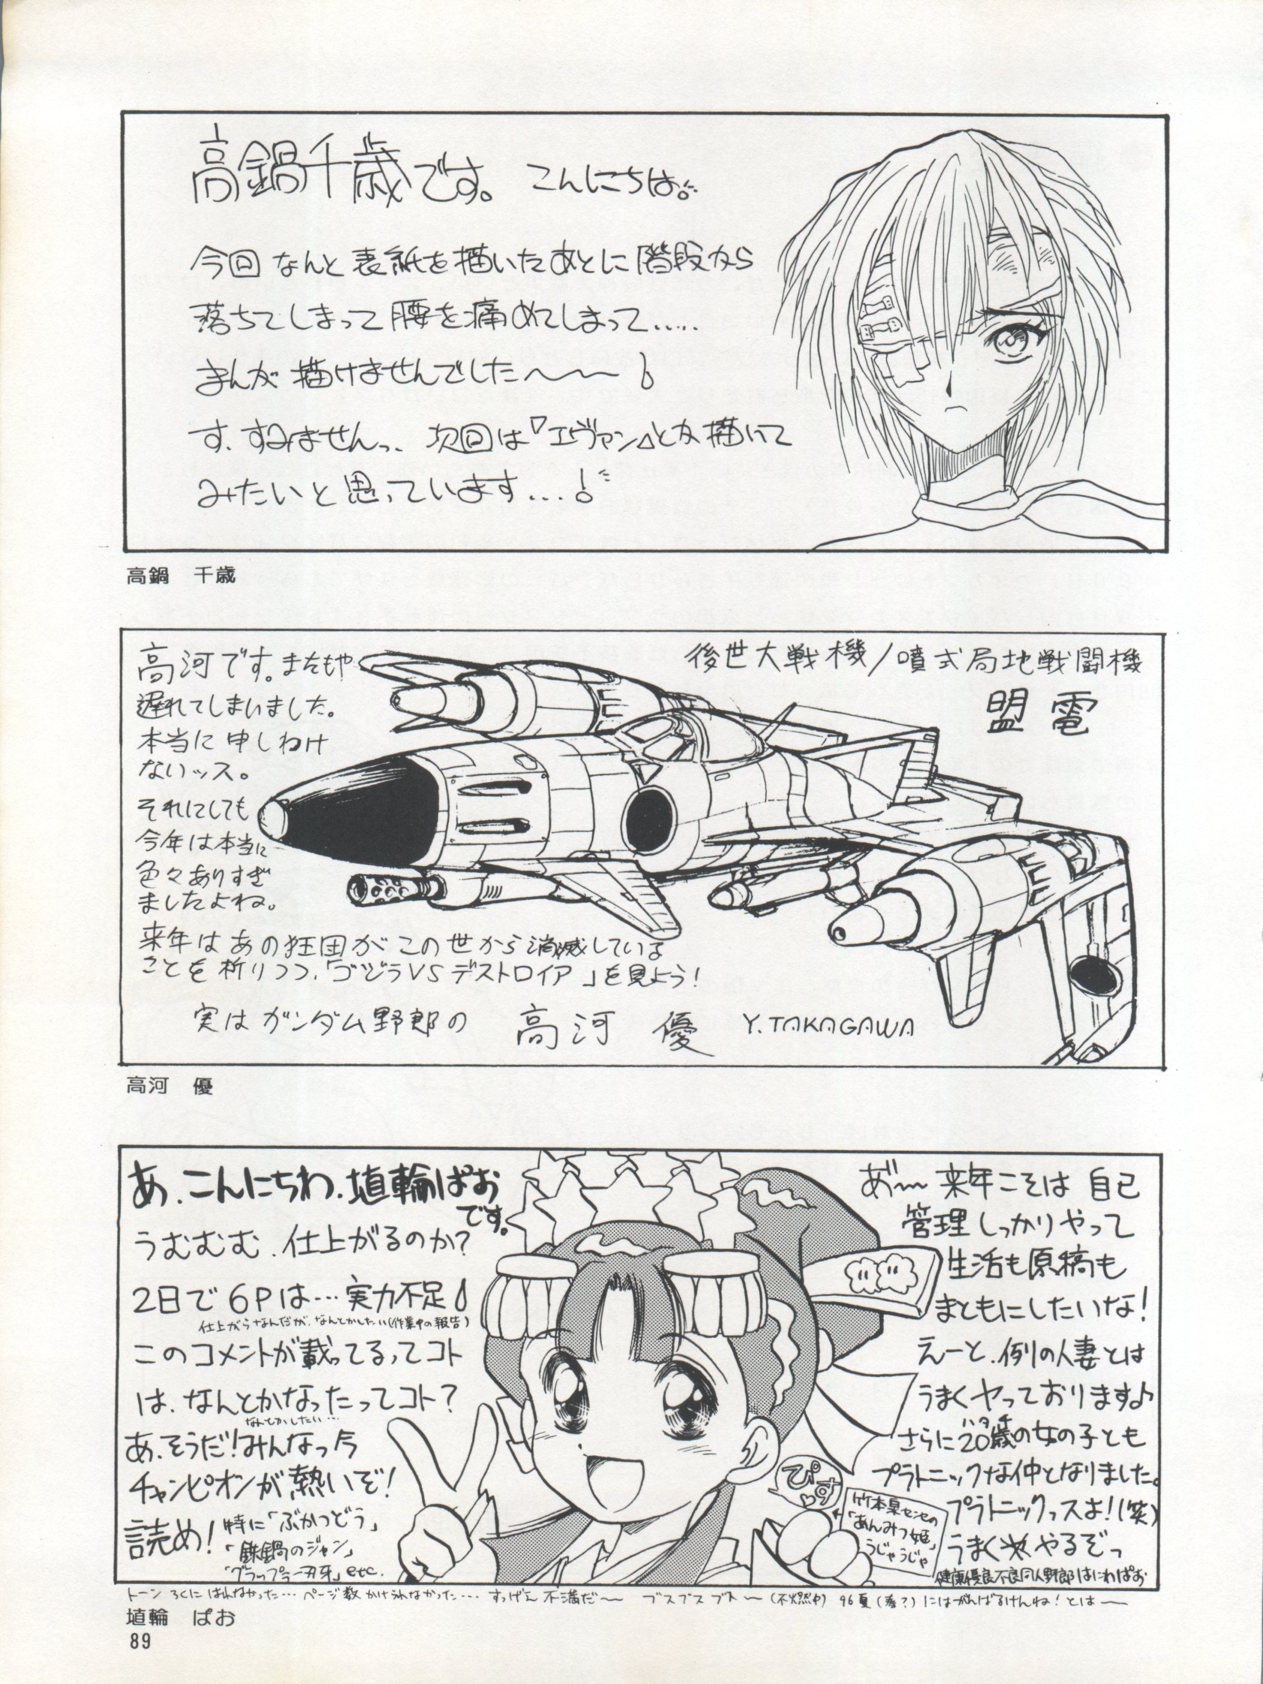 高鍋千歳です。こんにちは。
今回なんと表紙を描いたあとに階段から
落ちてしまって腰を痛めてしまって.....
まんが描けませんでした〜〜〜!
す、すみませんっ、次回は『エヴァン』とか描いて
みたいと思っています...!
高鍋 千歳
後世大戦機/噴式局地戦闘機
盟電
高河です。またもや
遅れてしまいました。
本当に申しわけ
ないッス。
それにしても
今年は本当に
色々ありすぎ
ましたよね。
来年はあの狂団がこの世から消滅している
ことを祈りつつ、「ゴジラVSデストロイア」を見よう!
実はガンダム野郎の 高河 優 Y.TAKAGAWA
高河 優
あ、こんにちわ、埴輪ぱお
です。
うむむむ、仕上がるのか?
2日で6Pは…実力不足!
仕上がらなんだが、なんとかしたい(作業中の報告)
このコメントが載ってるってコト
は、なんとかなったってコト?
なんとかしたい…
あ、そうだ!みんなっ今
チャンピオンが熱いぞ!
読め!特に「ぶかつどう」
「鉄鍋のジャン」
「グラップラー刃牙」etc.
あ゛〜来年こそは自己
管理しっかりやって
生活も原稿も
まともにしたいな!
えーと、例の人妻とは
うまくヤっております♪
さらに20歳の女の子とも
ハタチ
プラトニックな仲となりました。
プラトニックっスよ!(笑)
うまくやるぞっ
健康優良不良同人野郎はにわぱお
ぴーす
竹本泉センセの
「あんみつ姫」
うじゃうじゃ
トーン ろくにはれなかった… ページ数かけられなかった… すっげえ不満だ〜 ブスブスブス〜(不燃中) 96夏(春?)にはがんばるけんね!とは〜
埴輪 ぱお
89